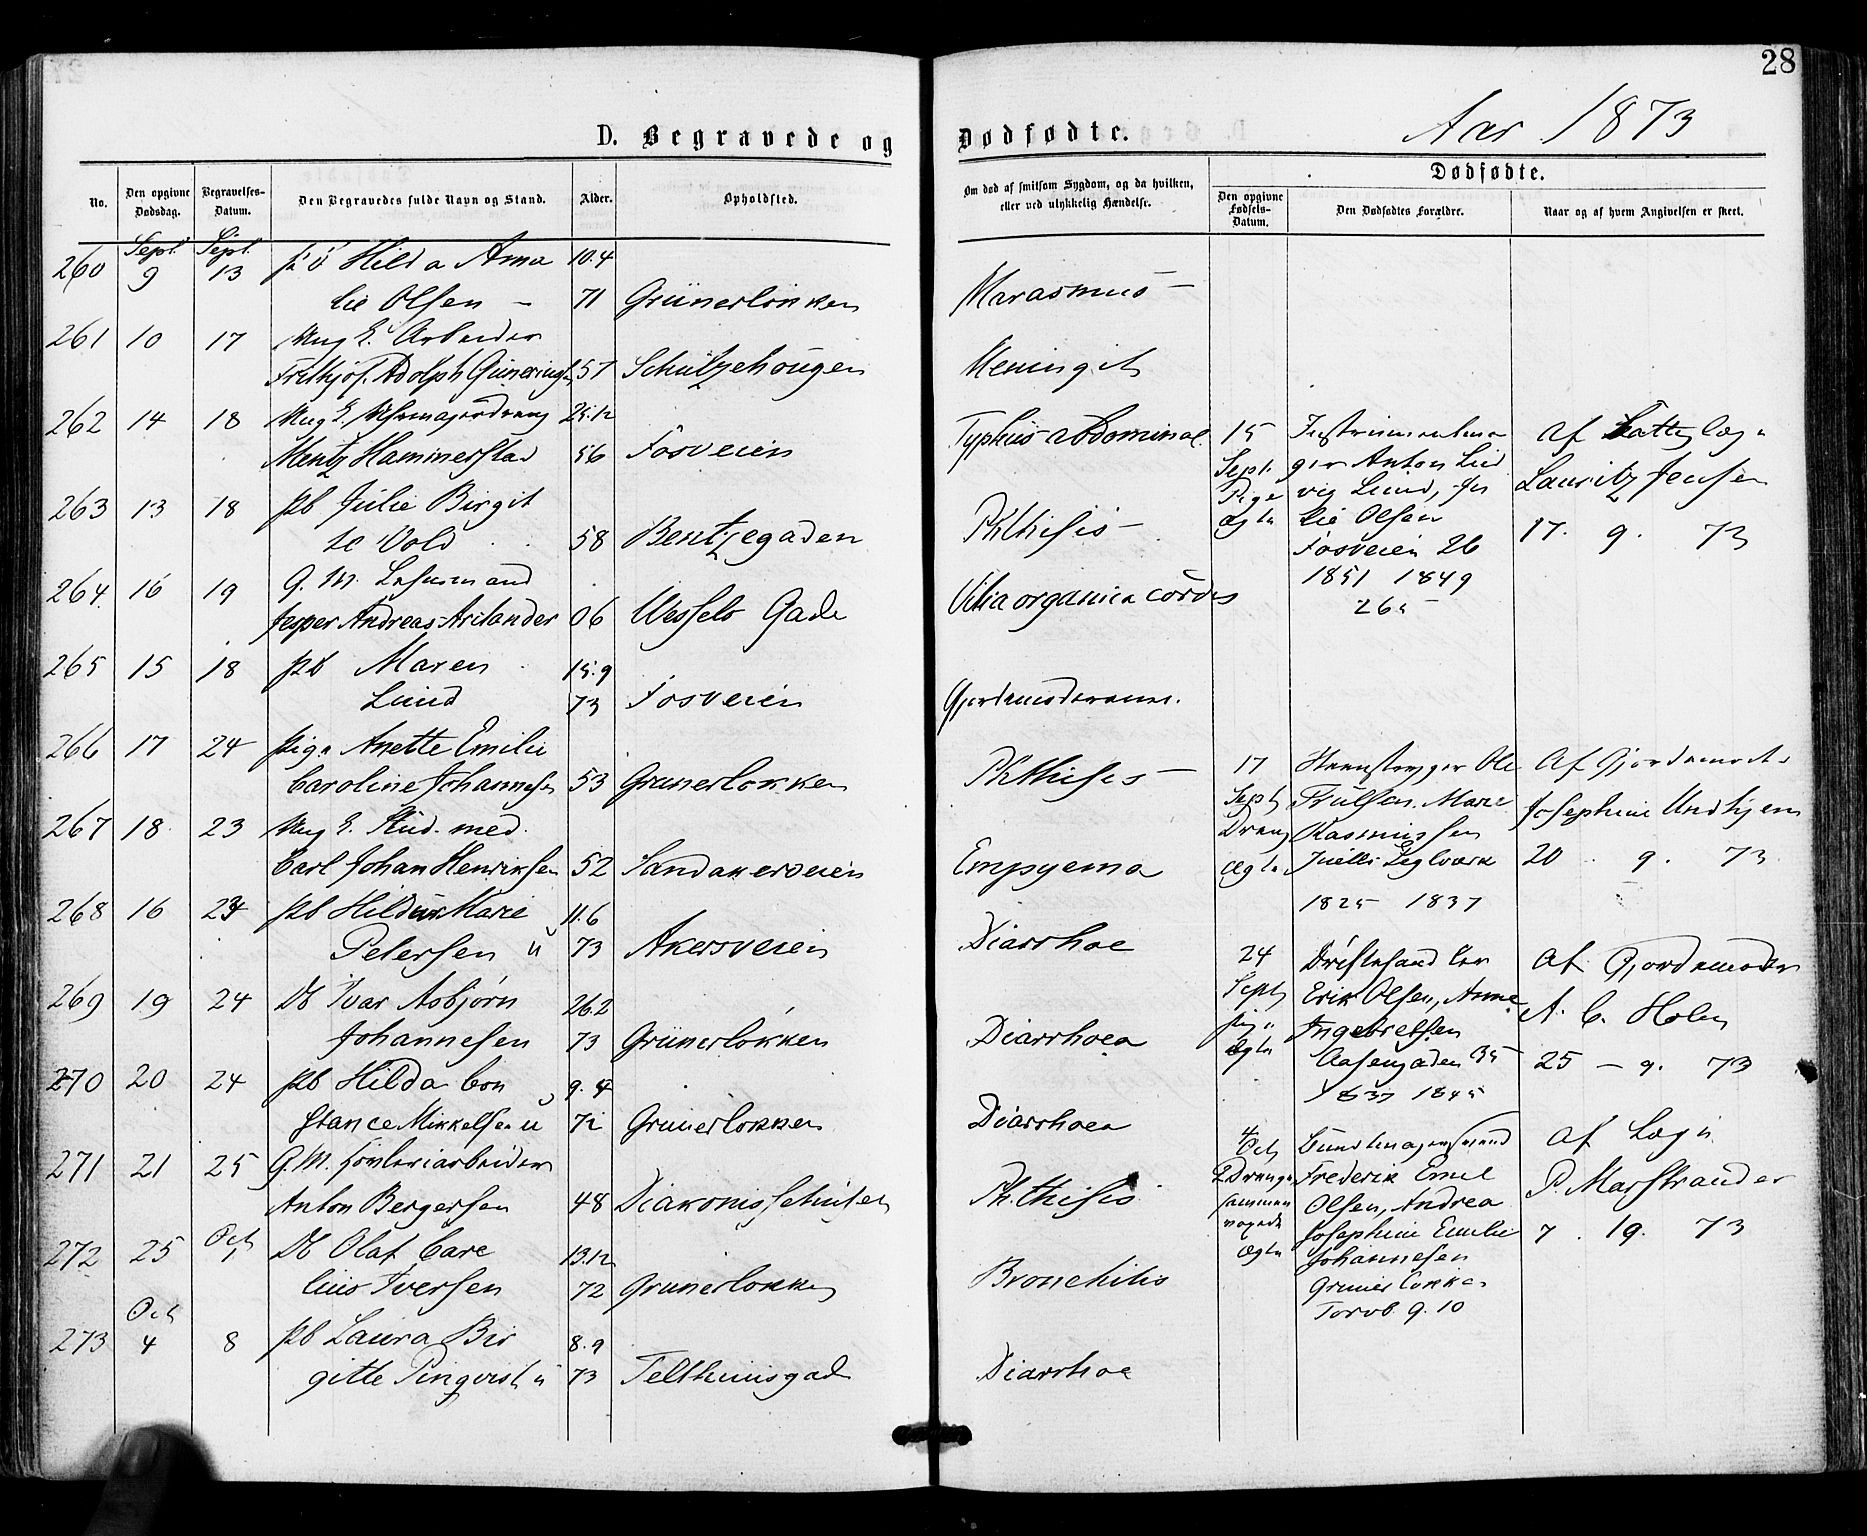 28
Aar 1873
D. Begravede og Dødfødte.
No.
Den opgivne Dødsdag.
Begravelses-Datum.
Den Begravedes fulde Navn og Stand.
Alder.
Opholdsted.
Om død af smitsom Sygdom, og da hvilken, eller ved ulykkelig Hændelse.
Dødfødte.
Den opgivne Fødsels-Datum.
Den Dødfødtes Forældre.
Naar og af hvem Angivelsen er skeet.
Sept. Sept.
260 9 13 Hilda Ama 10.4
lie Olsen 71 Grünerløkken Marasmus
261 10 17 Ung K. Arbeider
Frithjof Adolph 57 Schützehougen Meningit
262 14 18 25.12
Mentz Hammerstad 56 Fosveien Typhus abdominal
263 13 18 pb Julie Birgit
te Vold 58 Bentzegaden Phthisis
264 16 19 G. M.
Jesper Andreas Arilander 06 Wessels Gade Vitia organica cordis
265 15 18 pb Maren 15.9
Lund 73 Fosveien
266 17 24 pige Anette Emilie
Caroline Johannesen 53 Grünerløkken Phthisis
267 18 23 Ung K. Stud. med.
Carl Johan Henriksen 52 Sandakerveien Empyema
268 16 24 pb Hildur Marie 11.6
Petersen u 73 Akersveien Diarrhoe
269 19 24 Db Ivar Asbjørn 26.2
Johannesen 73 Grünerløkken Diarrhoea
270 20 24 pb Hilda Con 9.4
stance Mikkelsen u 72 Grünerløkken Diarrhoea
271 21 25 G.M.
Anton Bergersen 48 Phthisis
Oct
272 25 1 Db Olaf Care 13.12
lius Iversen 72 Grünerløkken Bronchitis
Oct
273 4 8 pb Laura Bir 8.9
gitte u 73 Telthuusgad Diarrhoe
15 Instrumentma af Fattiglæge
Sept. ger Anton Lud Lauritz Jensen
Pige vig Lund, Ju
ægte lie Olsen 17. 9. 73
Fosveien 26
1851 1849
17 Ole Af Gjordemoder
Sept Marie Josephine Undhjem
Dreng Rasmussen
ægte 20 9. 73
1825 1837
24 af Gjordemoder
Sept Erik Olsen, Anne A. C. Holm
Pige Ingebretsen
ægte Aasengaden 35 25 – 9. 73
1837 1845
4 af Læge
Oct
2 Drenge Frederik Emil P. Marstrander
sammen Olsen, Andrea
Josephine Emilie 7. 19. 73
ægte Johannesen
Grünerløkken
Torvb. 9. 10